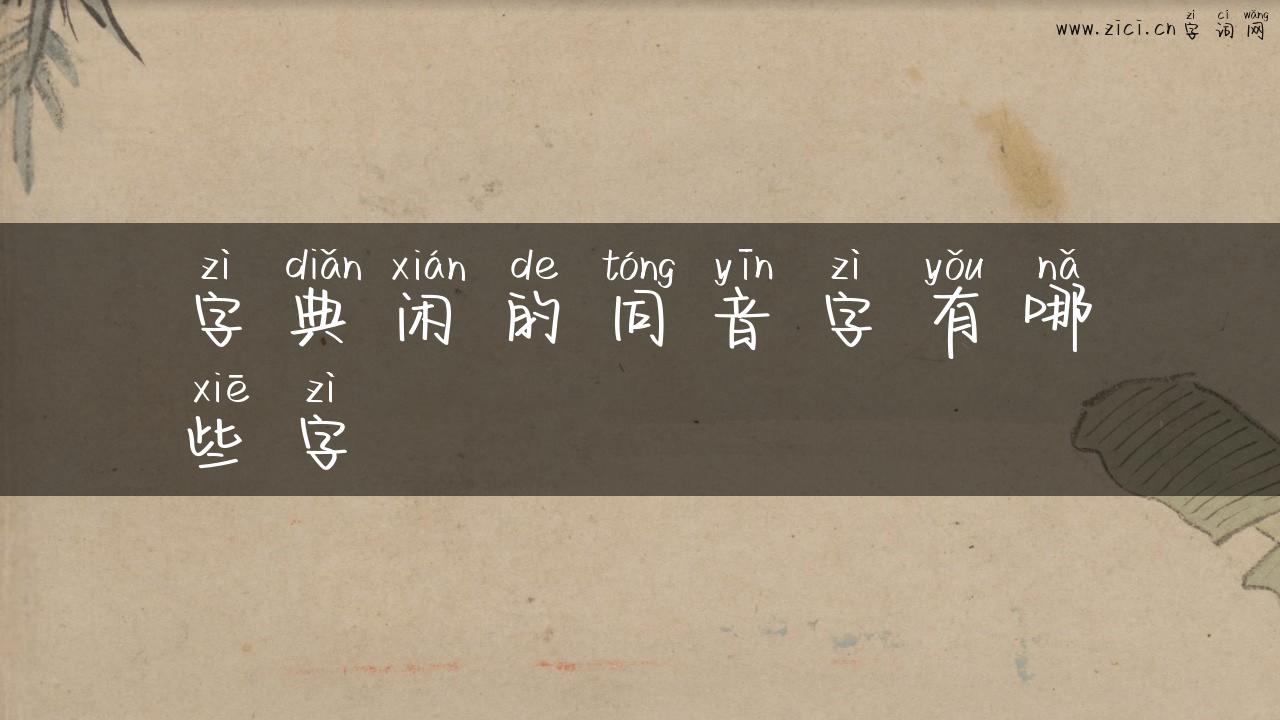 zì cí wǎng
www.zici.cn 字词网
zì diǎn xián de tóng yīn zì yǒu nǎ
字典闲的同音字有哪
xiē zì
些字